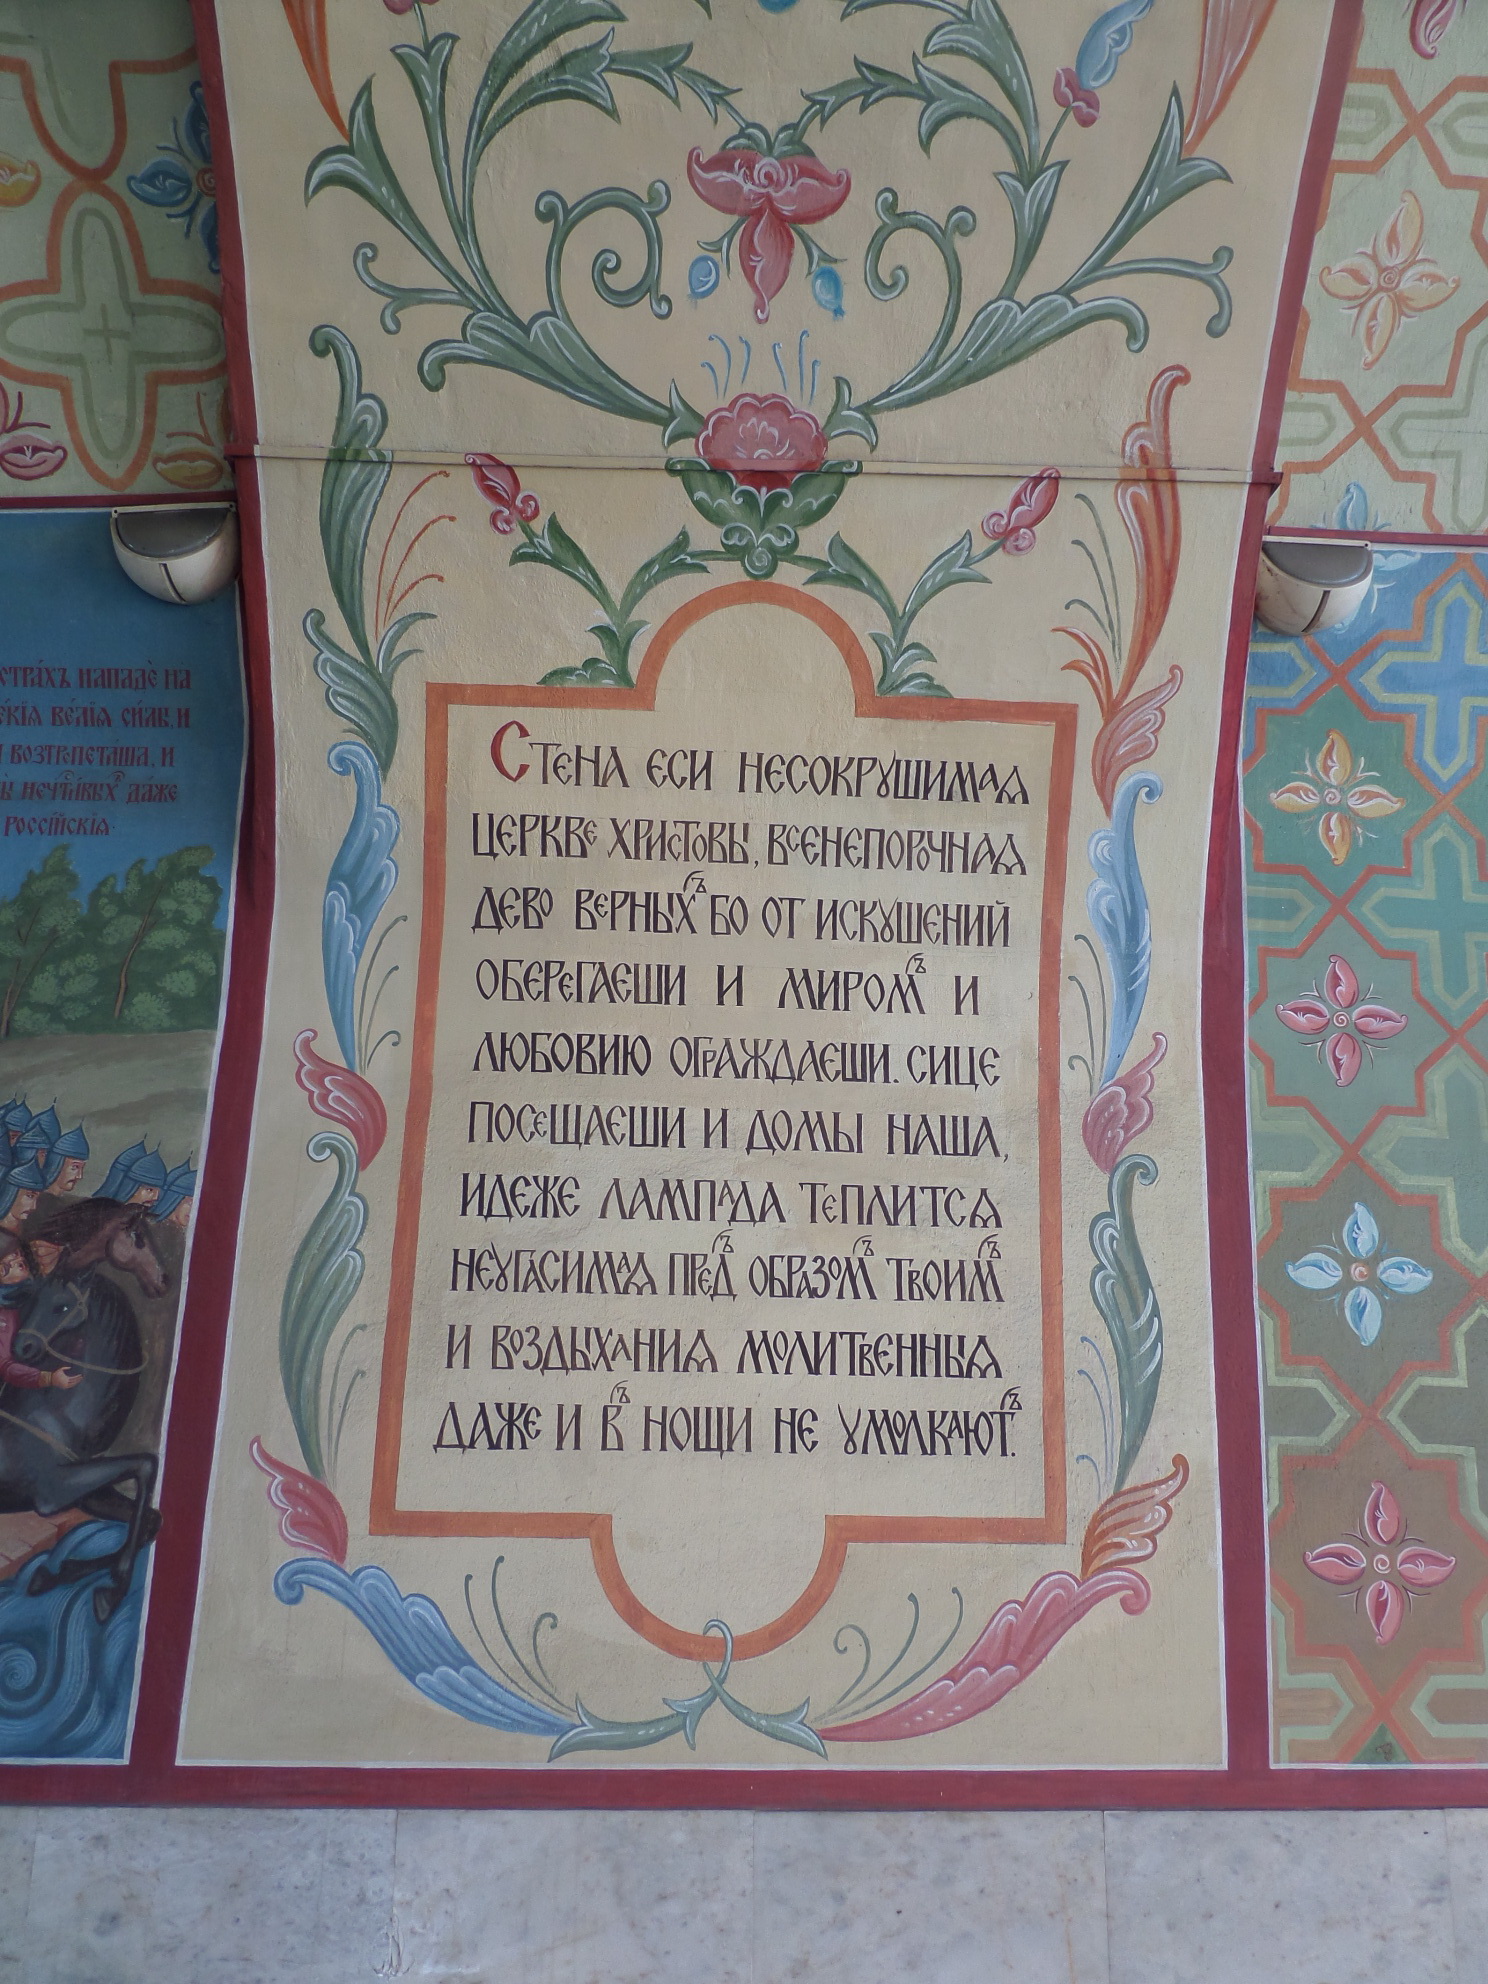 стра́хъ нападѐ на
ве́лїѧ си́лы, и
возтрепета́ша, и
да́же
россі́йскїѧ.
Стена еси несокрꙋшимаѧ
церкве христовы, всенепорочнаѧ
дево верныхъ бо от искꙋшений
оберегаеши и миромъ и
любовию ограждаеши. сице
посещаеши и домы наша,
идеже лампада теплитсѧ
неꙋгасимаѧ предъ образомъ твоимъ
и воздыханиѧ молитвенныѧ
даже и въ нощи не ꙋмолкаютъ.